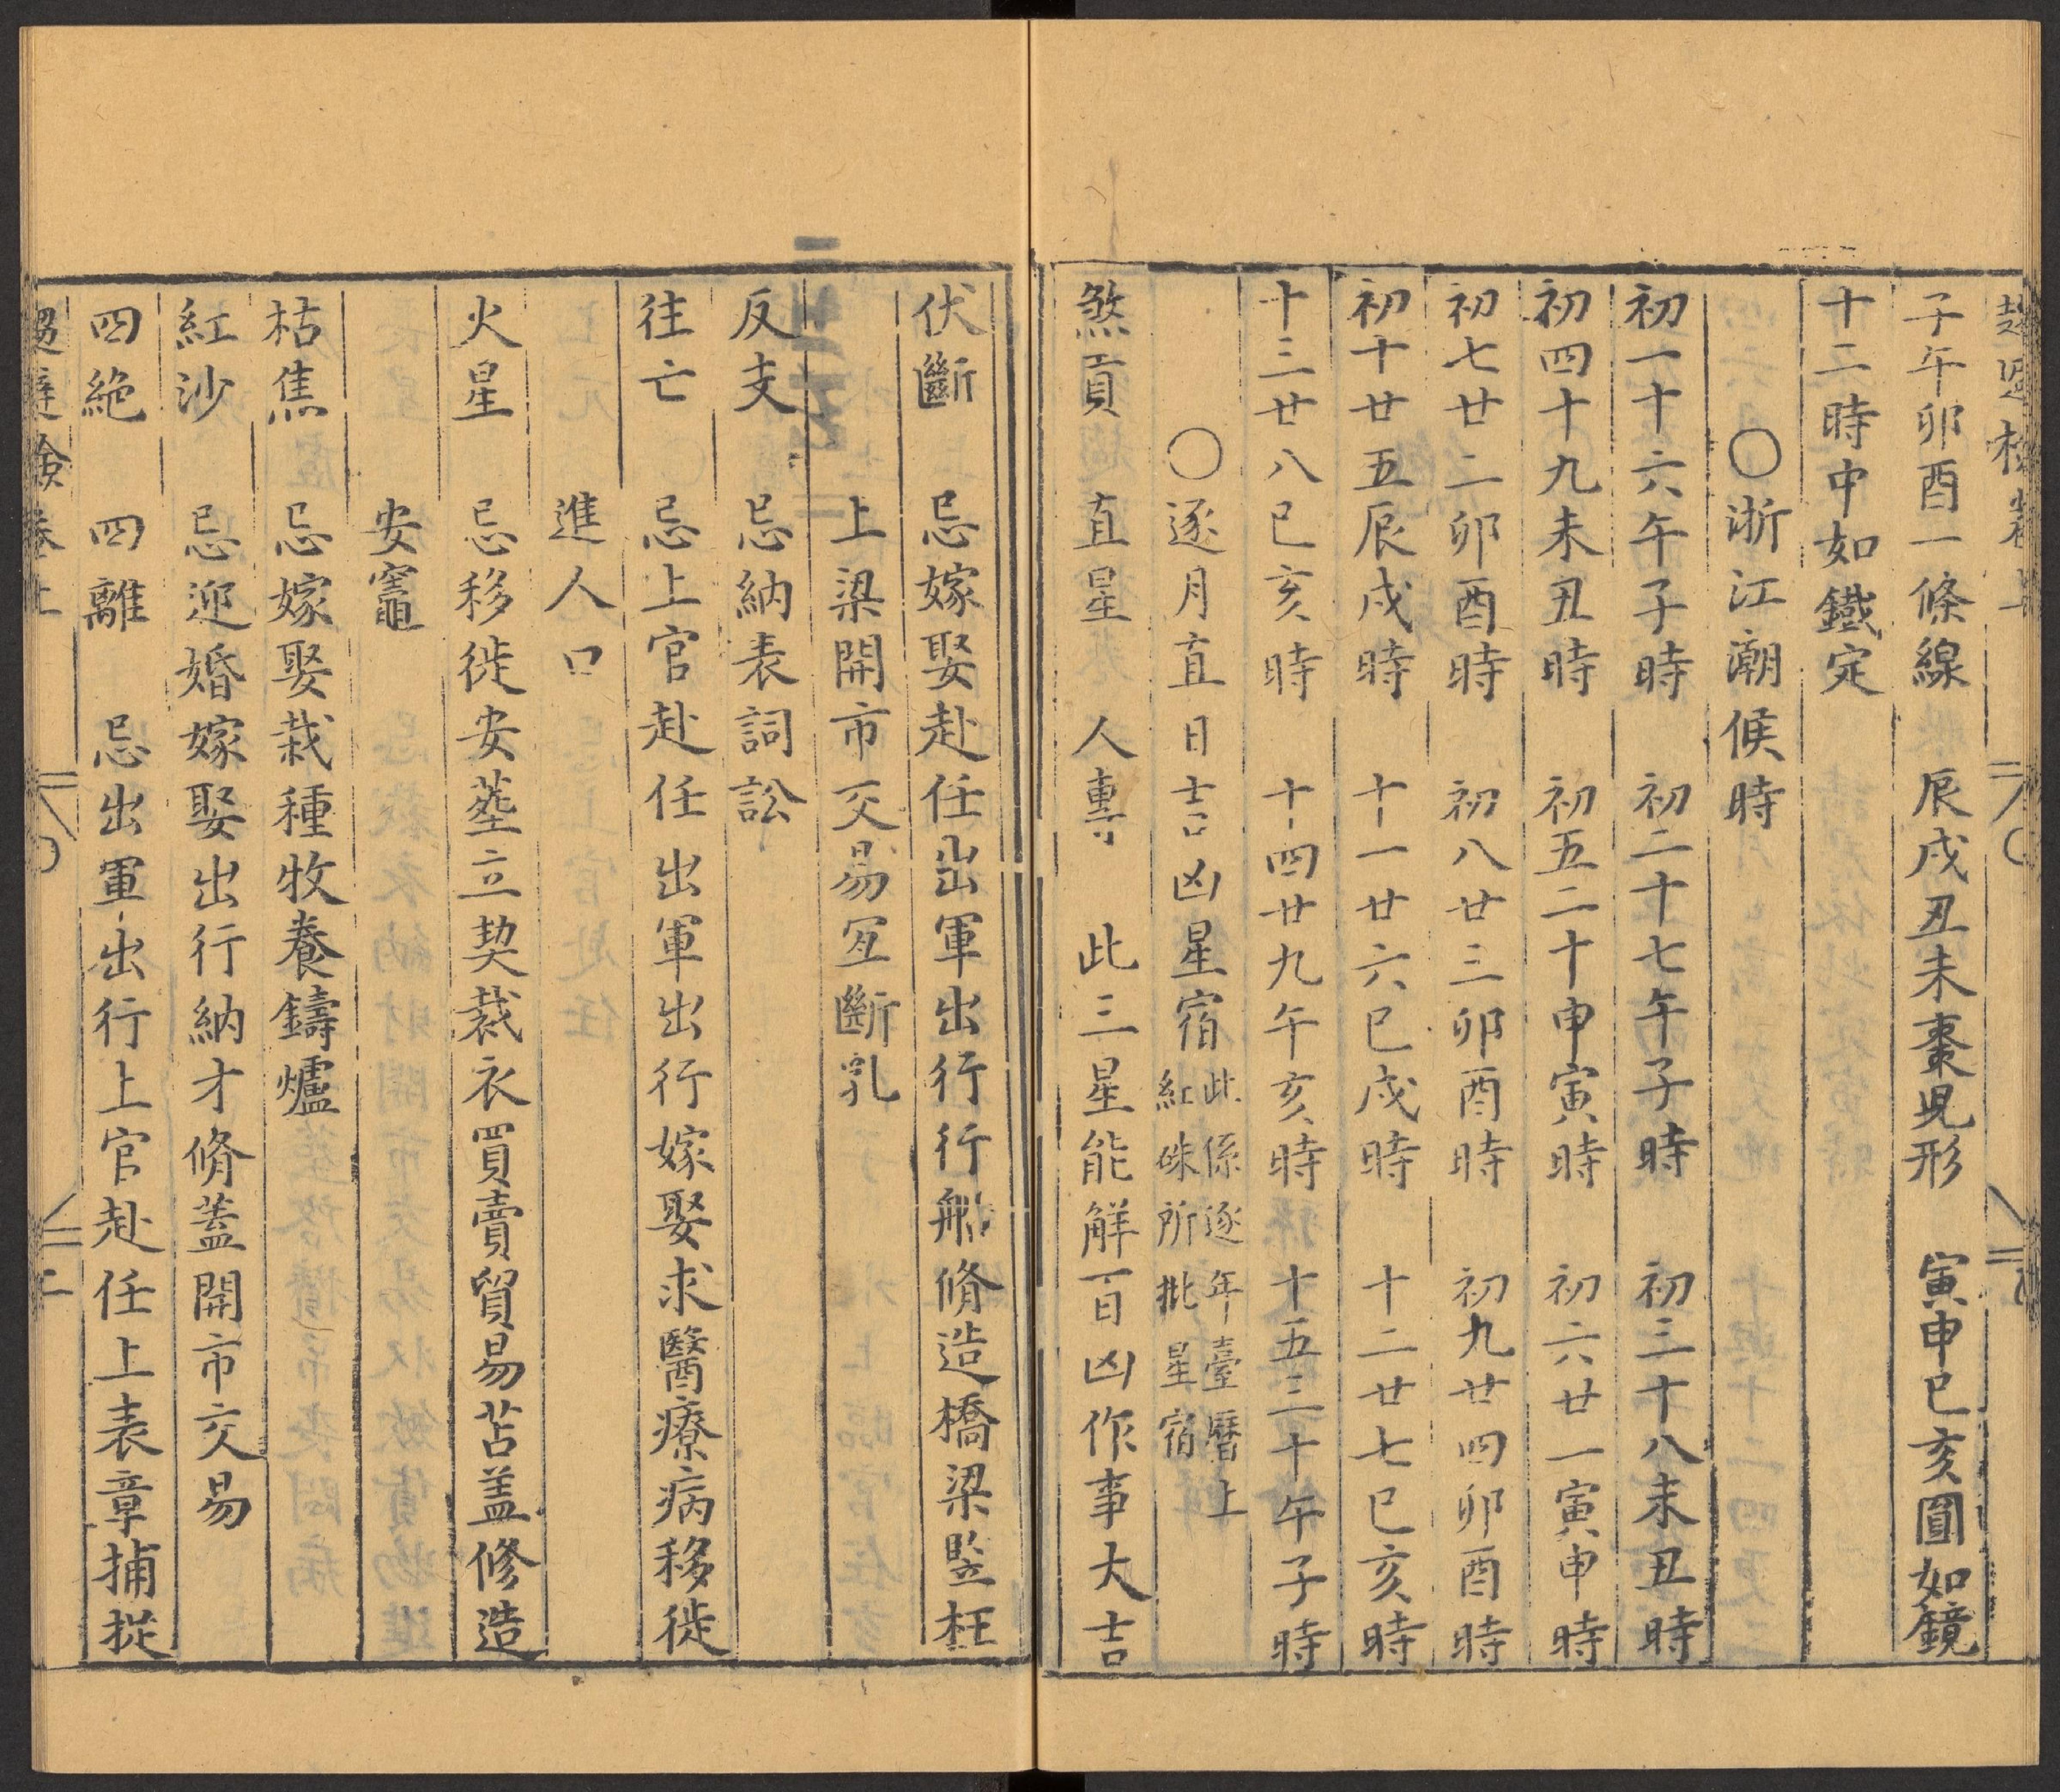 子午卯酉一條線　辰戌丑未棗児形　寅申巳亥圓如鏡
十二時中如鐵定
〇浙江潮候時
初一十六午子時　初二十七午子時　初三十八未丑時
初四十九未丑時　初五二十申寅時　初六廿一寅申時
初七廿二卯酉時　初八廿三卯酉時　初九廿四卯酉時
初十廿五辰戌時　十一廿六巳戌時　十二廿七巳亥時
十三廿八巳亥時　十四廿九午亥時　十五三十午子時
〇逐月直日吉凶星宿
此係逐年臺曆上
紅硃所批星宿
煞貢　直星　人專　此三星能觧百凶作事大吉
伏斷　忌嫁娶赴任出軍出行行船脩造橋梁竪柱
上梁開市交易冝斷乳
反支　忌納表詞訟
往亡　忌上官赴任出軍出行嫁娶求醫療病移徙
進人口
火星　忌移徙安塟立契裁衣買賣貿易苫盖修造
安竈
枯焦　忌嫁娶栽種牧養鑄爐
紅沙　忌迎婚嫁娶出行納才脩蓋開市交易
四絶　四離　忌出軍出行上官赴任上表章捕捉
避
卷上